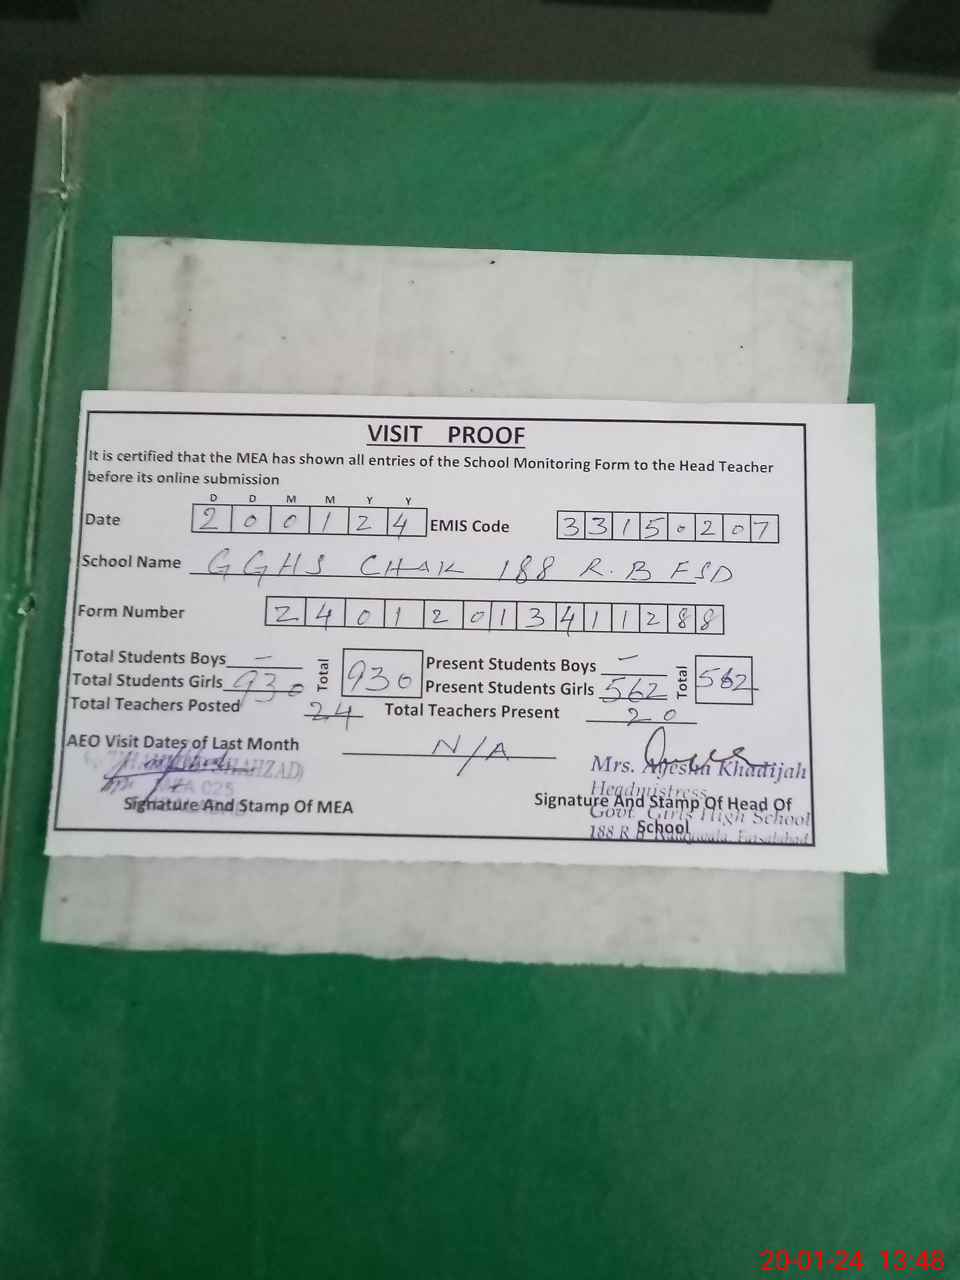 VISIT PROOF
It is certified that the MEA has shown all entries of the School Monitoring Form to the Head Teacher
before its online submission
D D M M Y Y
Date 2 0 0 1 2 4 EMIS Code 3 3 1 5 0 2 0 7
School Name GGHS CHAK 188 R.B FSD
Form Number 2 4 0 1 2 0 1 3 4 1 1 2 8 8
Total Students Boys — Total 930 Present Students Boys — Total 562
Total Students Girls 930 Present Students Girls 562
Total Teachers Posted 24 Total Teachers Present 20
AEO Visit Dates of Last Month N/A
SHAHZAD)
MEA 025
Signature And Stamp Of MEA
Mrs. Ayesha Khadijah
Headmistress
Signature And Stamp Of Head Of School
Govt. Girls High School
188 R B
20-01-24 13:48